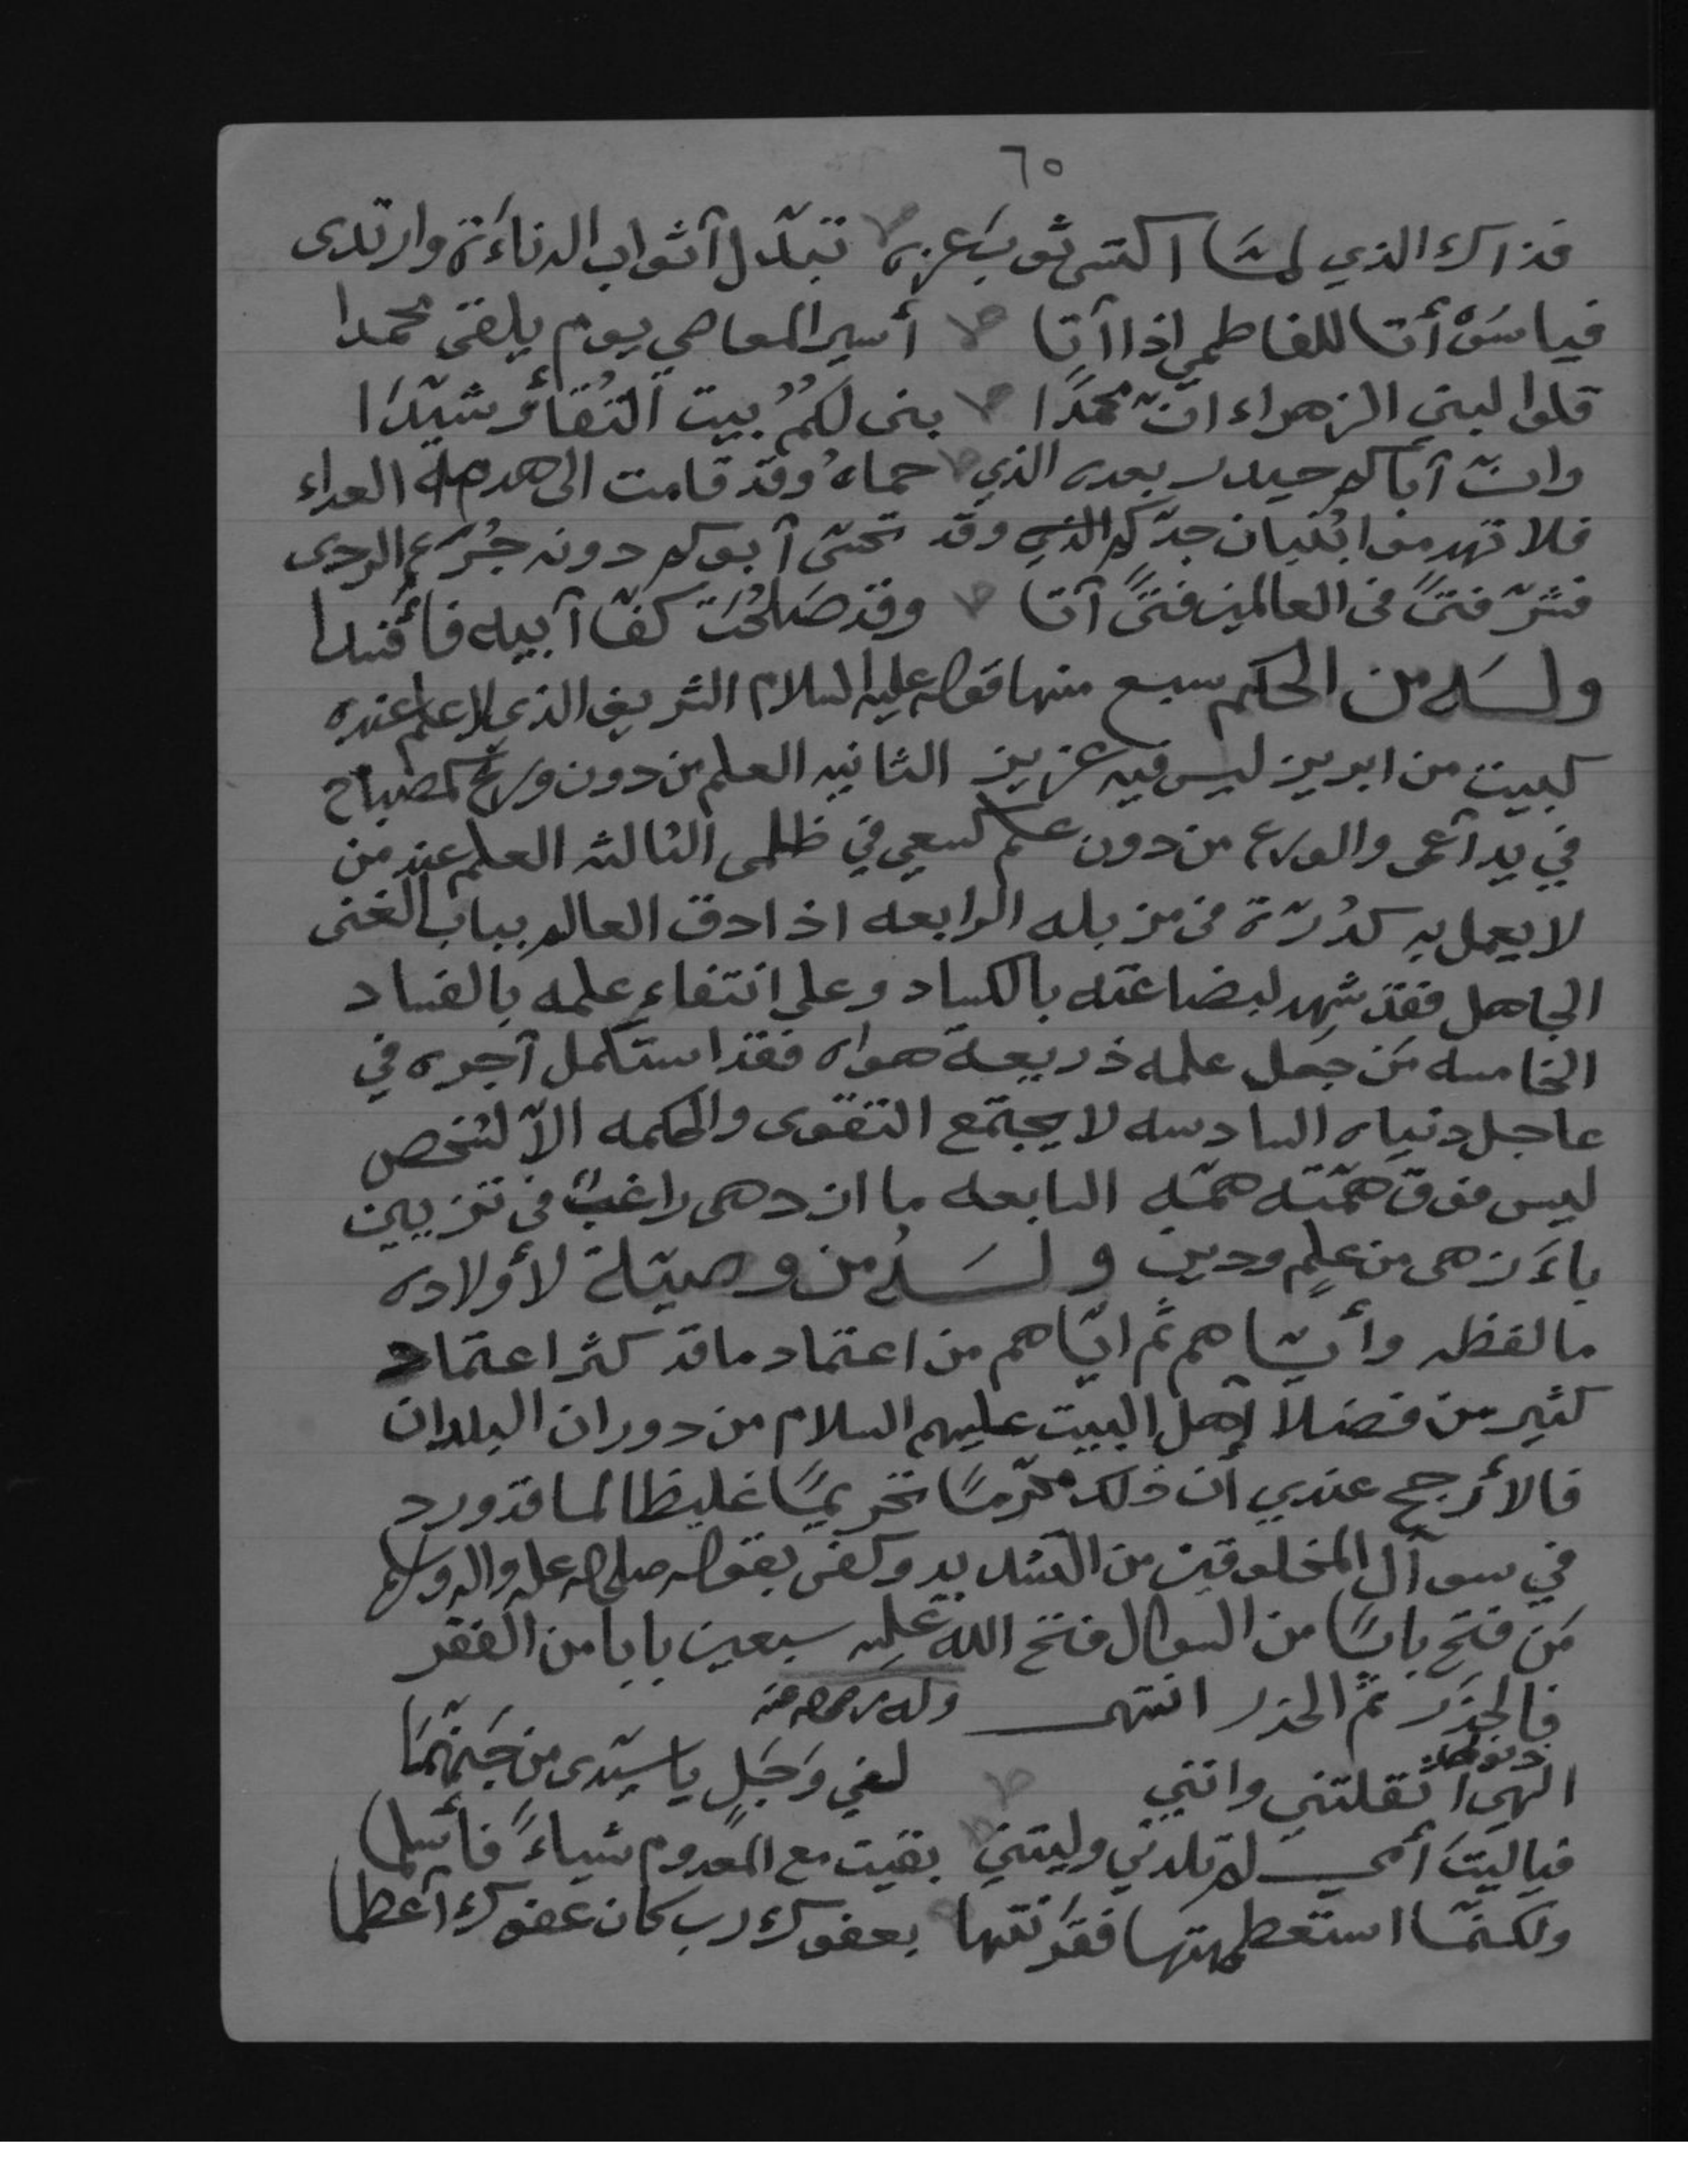 ٦٥
فذاك الذي لمّا اكتسى ثوب عزه تبدّل آثواب الدناءة وارتدى
فيا سوْ أتا للفاطمي اذا آتا أسير المعاصي يوم يلقى محمدا
قلوا لبني الزهراء انّ محمدًا بنى لكمُ بيت التُقاءُ شيّدا
وانّ آباكم حيدر بعده الذي حماهُ وقد قامت الى هدمه العداء
فلا تهدموا بُنيان جدّكم وقد تحسّى آبوكم دونه جُرع الردى
فشرّ فتىً في العالمين فتىً آتا وقد صَلحُت كفّا آبيه فأفسدا
ولـــه من الحكم سبع منها قوله عليه السلام الشريف الذي لا علم عنده
كبيت من ابريز ليس فيه عزيز الثانيه العلم من دون ورع كمصباح
في يد آعمى والورع من دون علم كسعي في ظلمى الثالثه العلم عند من
لا يعمل به كدُرّة في مزبله الرابعه اذا دق العالم بباب الغنى
الجاهل فقد شهد لبضاعته بالكساد وعلى انتفاء علمه بالفساد
الخامسه مَن جعل علمه ذريعة هواه فقد استكمل آجره في
عاجل دنياه السادسه لا يجتمع التقوى والحكمه الّا لشخص
ليس فوق همّته همّه السابعه ما ازدهى راغبٌ في تزيين
باءَزهى من علمٍ ودين ولـــهُ من وصيّة لأولاده
ما لفظه وأيّاهم ثم ايّاهم من اعتماد ما قد كثر اعتماد
كثير من فضلاَ آهل البيت عليهم السلام من دوران البلدان
فالأرجح عندي أن ذلك محرّمًا تحريمًا غليظا لما قد ورد
في سوآل المخلوقين من التشديد وكفى بقوله صلى الله عليه واله وسلم
مَن فتح بابًا من السوال فتح الله عليه سبعين بابا من الفقر
فالحذَر ثم الحذر انتهى وله رحمه الله
الهي اثقلتني وانني لفي وَجَلٍ يا سيّدى من جَهنّمَا
فياليتَ أمي لم تلدني وليتني بقيت مع المعدوم شياءً فأسلما
ولكنّما استعظمتها فقرَنتها بعفوك رب كان عفوك آعظما